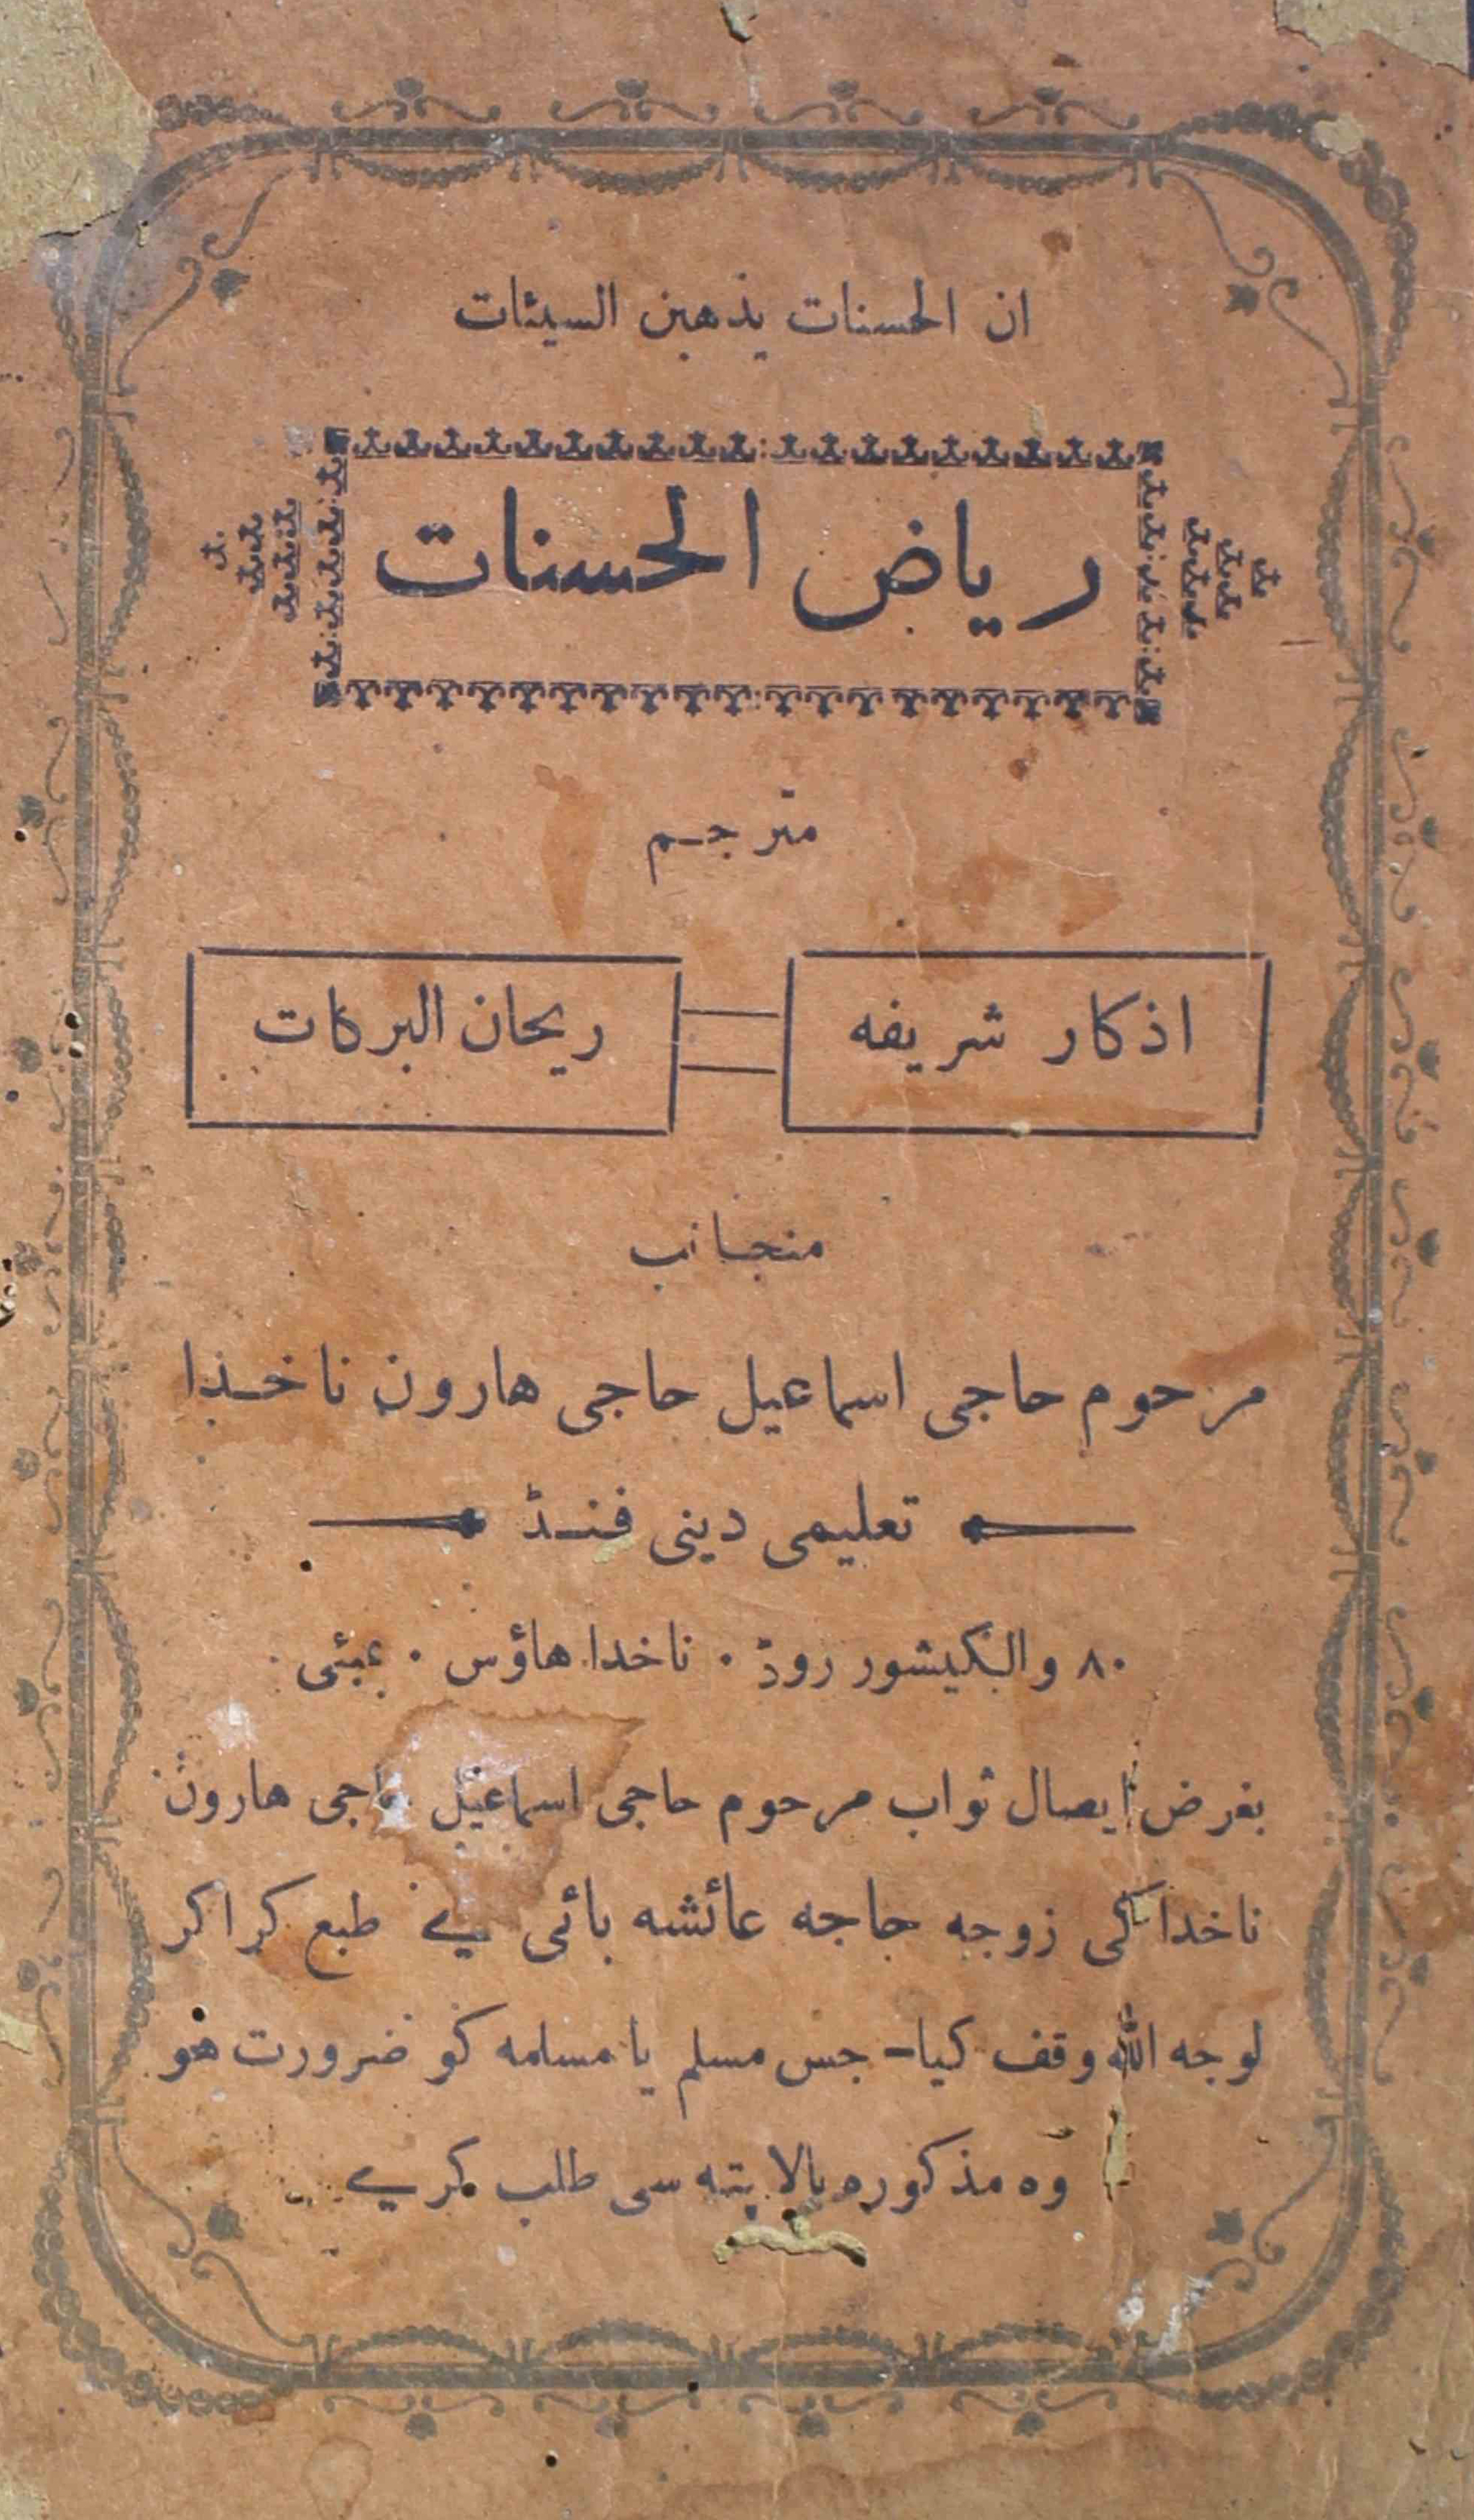 ان الحسنات يذهبن السيئات
رياض الحسنات
مترجم
اذكار شريفه
ريحان البركات
منجانب
مرحوم حاجی اسماعیل حاجی هارون ناخدا
تعلیمی دینی فنڈ
۸۰ والکیشور روڈ ۰ ناخدا هاؤس ۰ بمبئی
بغرض ایصال ثواب مرحوم حاجی اسماعیل حاجی هارون
ناخدا کی زوجه حاجه عائشه بائی نے طبع کرا کر
لوجه الله وقف کیا - جس مسلم یا مسلمه کو ضرورت هو
وه مذکوره بالا پته سی طلب کریے